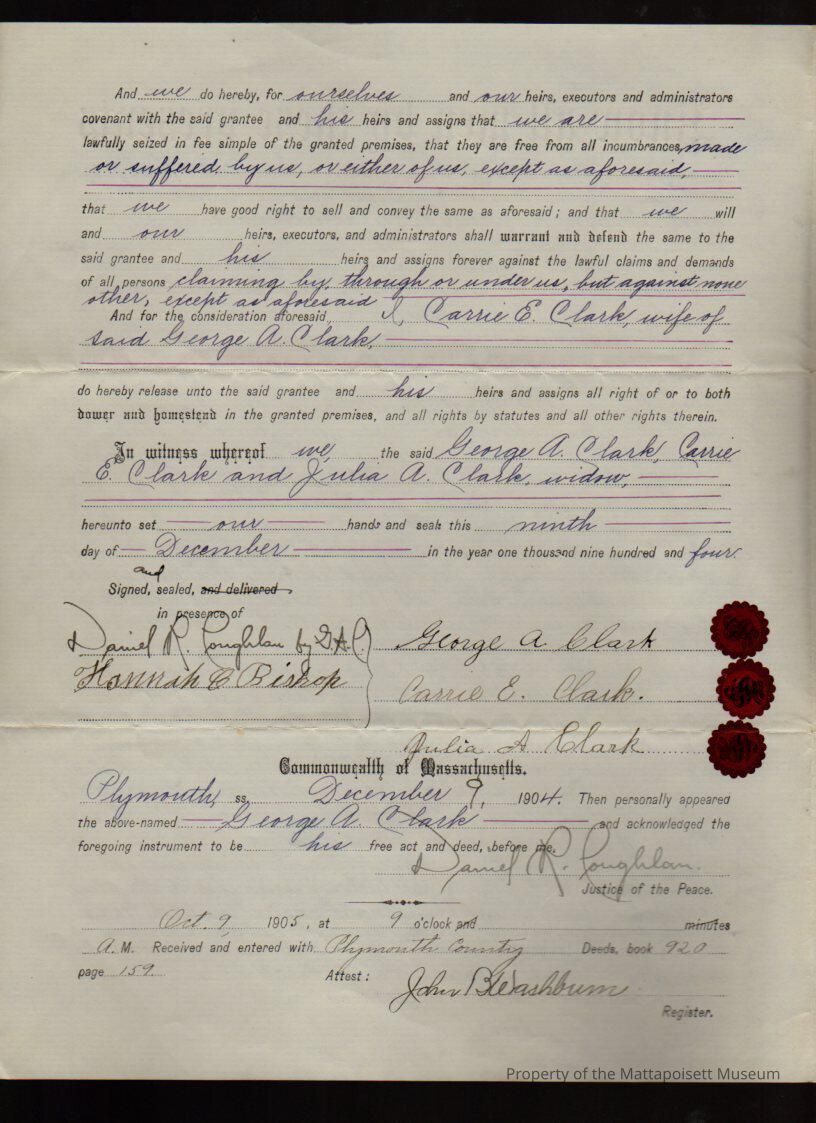 And we do hereby, for ourselves and our heirs, executors and administrators
covenant with the said grantee and his heirs and assigns that we are
lawfully seized in fee simple of the granted premises, that they are free from all incumbrances, made
or suffered by us, or either of us, except as aforesaid,
that we have good right to sell and convey the same as aforesaid; and that we will
and our heirs, executors, and administrators shall warrant and defend the same to the
said grantee and his heirs and assigns forever against the lawful claims and demands
of all persons claiming by, through or under us, but against none
other, except as aforesaid
And for the consideration aforesaid, I, Carrie E. Clark, wife of
said George A. Clark,
do hereby release unto the said grantee and his heirs and assigns all right of or to both
dower and homestead in the granted premises, and all rights by statutes and all other rights therein.
In witness whereof we, the said George A. Clark, Carrie
E. Clark and Julia A. Clark, widow,
hereunto set our hands and seals this ninth
day of December in the year one thousand nine hundred and four.
and
Signed, sealed, and delivered
in presence of
Daniel R. Coughlan by G.A.C. George A Clark
Hannah C Bishop Carrie E. Clark.
Julia A Clark
Commonwealth of Massachusetts.
Plymouth, ss. December 9, 1904. Then personally appeared
the above-named George A. Clark and acknowledged the
foregoing instrument to be his free act and deed, before me,
Daniel R. Coughlan.
Justice of the Peace.
Oct. 9, 1905, at 9 o'clock and minutes
A.M. Received and entered with Plymouth County Deeds, book 920
page 159. Attest:
John B Washburn
Register.
Property of the Mattapoisett Museum